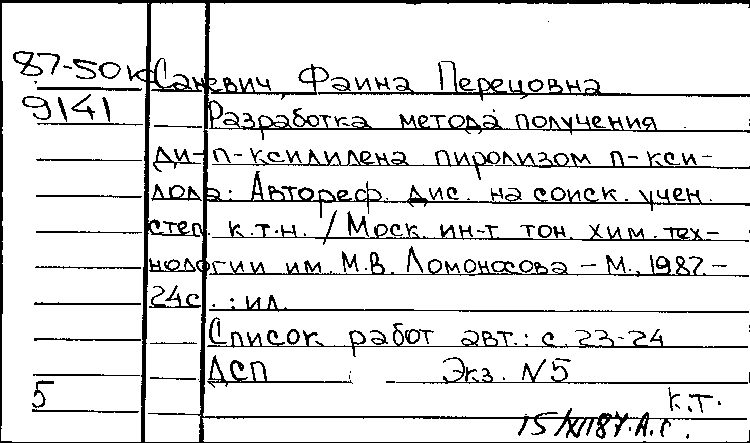 87-50к Саневич, Фаина Перецовна
9141 Разработка метода получения
ди-п-ксилилена пиролизом п-кси-
лола: Автореф. дис. на соиск. учен.
степ. к.т.н. / Моск. ин-т тон. хим. тех-
нологии им. М.В. Ломоносова – М., 1987. –
24с. : ил.
Список работ авт.: с. 23-24
ДСП Экз. №5
5 к.т.
15/XII87. А.Г.